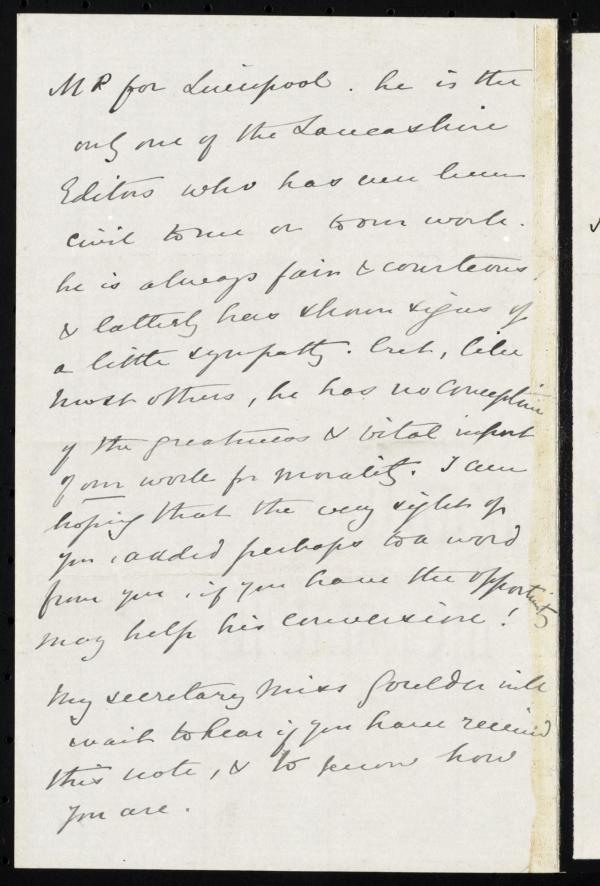 MP for Liverpool. he is the
only one of the Lancashire
Editors who has even been
civil to me or to our work.
he is always fair & courteous,
& latterly has shown signs of
a little sympathy. But, like
most others, he has no conception
of the greatness & vital import
of our work for morality. I am
hoping that the very sight of
you, added perhaps to a word
from you, if you have the opportunity
may help his conversion!
My secretary Miss Goulder will
wait to hear if you have received
this note, & to know how
you are.